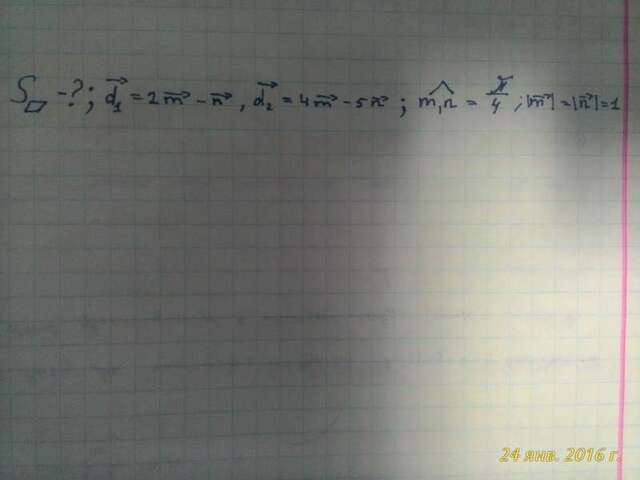 S▱ -?; d₁⃗ = 2m⃗ - n⃗, d₂⃗ = 4m⃗ - 5n⃗; m,n^ = π/4; |m⃗| = |n⃗| = 1
24 янв. 2016 г.